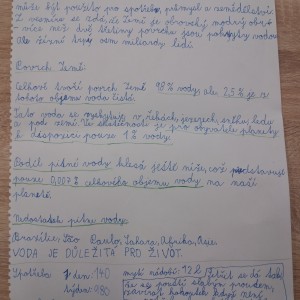 může být použito pro spotřebu, průmysl a zemědělství.
Z vesmíru se zdá, že Země je obrovský modrý obr
- více než dvě třetiny povrchu jsou pokryty vodou
ale žízní trpí miliardy lidí.
Povrch Země:
Celkově tvoří povrch Země 98% vody, ale 2,5% je z
tohoto objemu voda čistá.
Tato voda se vyskytuje v řekách, jezerech, srážek, ledu
a pod zemí. Ve skutečnosti je pro obyvatele planety
k dispozici pouze 1% vody.
Podíl pitné vody klesá ještě níže, což představuje
pouze 0,007% celkového objemu vody na naší
planetě.
Nedostatek pitné vody:
Brazílie, Sao Paulo, Sahara, Afrika, Asie.
VODA JE DŮLEŽITÁ PRO ŽIVOT.
Spotřeba: 1 den 140
týden 980
mytí nádobí: 12 l